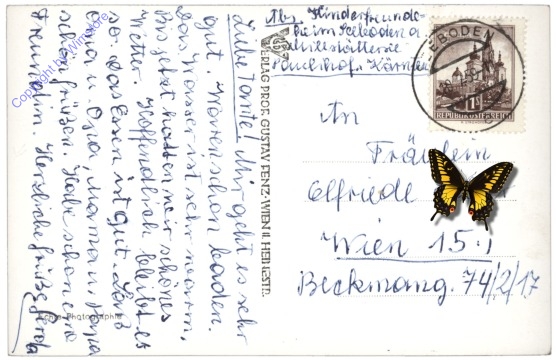 Abs. Kinderfreunde-
heim Seeboden a.
Millstättersee
Paulihof. Kärnten
EBODEN
REPUBLIK ÖSTERREICH
An
Fräulein
Elfriede
Wien 15.
Beckmanng. 74/2/17
VERLAG PROF. GUSTAV FENZ-WIEN II. HEINESTR.
Liebe Tante! Mir geht es sehr
gut. Waren schon baden.
Das Wasser ist sehr warm.
Bis jetzt hatten wir schönes
Wetter. Hoffendlich bleibt es
so. Das Essen ist gut. Laß
Oma u. Opa, Mama u. Papa
schön grüßen. Habe schon eine
Freundin. Herzliche Grüße
Echte Photographie
Copyright by Wimstore